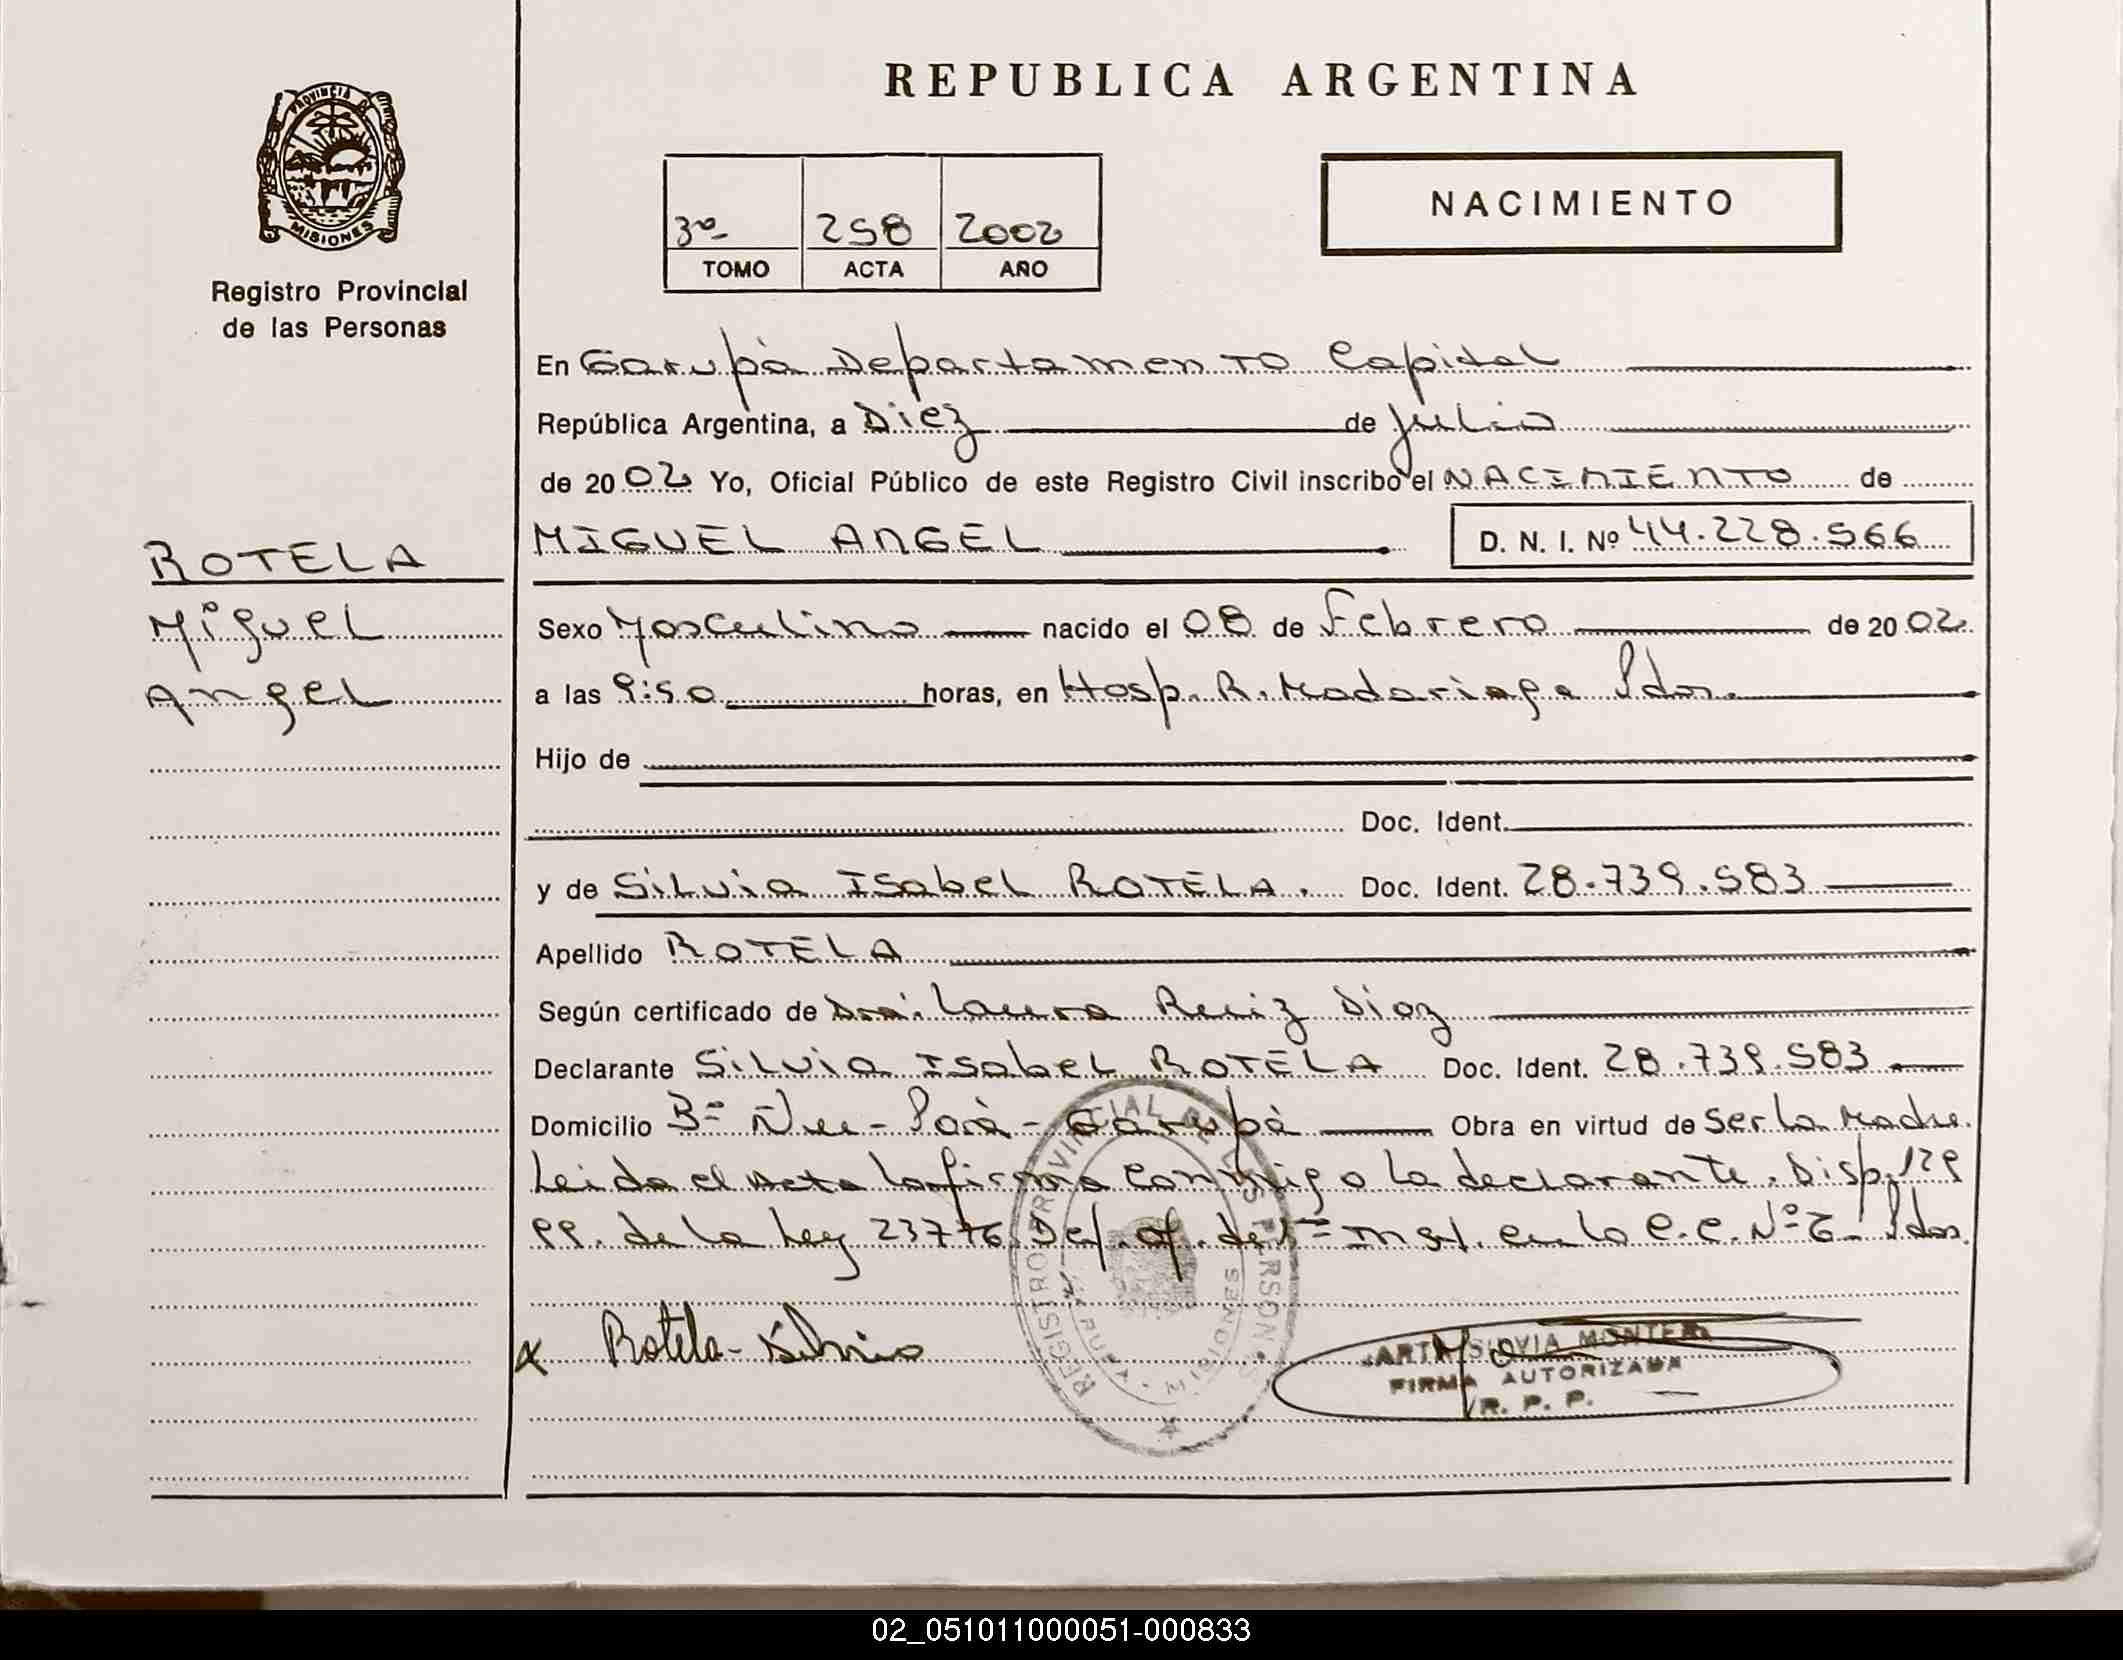 REPUBLICA ARGENTINA
PROVINCIA DE
MISIONES
Registro Provincial
de las Personas
3º 258 2002
TOMO ACTA AÑO
NACIMIENTO
En Garupà Departamento Capital
República Argentina, a Diez de julio
de 2002 Yo, Oficial Público de este Registro Civil inscribo el NACIMIENTO de
ROTELA
MIGUEL ANGEL D. N. I. Nº 44.228.566
Miguel
Sexo Masculino nacido el 08 de Febrero de 2002
Angel
a las 9:50 horas, en Hosp. R. Madariaga Pdas.
Hijo de
Doc. Ident.
y de Silvia Isabel ROTELA. Doc. Ident. 28.739.583
Apellido ROTELA
Según certificado de Dra. Laura Ruiz Diaz
Declarante Silvia Isabel ROTELA Doc. Ident. 28.739.583
Domicilio Bº Ñu - Porà - Garupà Obra en virtud de Ser la Madre.
Leida el Acta la firma conmigo la declarante. Disp. 129
PP. de la Ley 23776 Def. of. de 1º Inst. en lo C.C. Nº 6 Pdas.
REGISTRO PROVINCIAL DE LAS PERSONAS
GARUPA - MISIONES
x Rotela - Silvia
SILVIA
FIRMA AUTORIZADA
R. P. P.
02_051011000051-000833